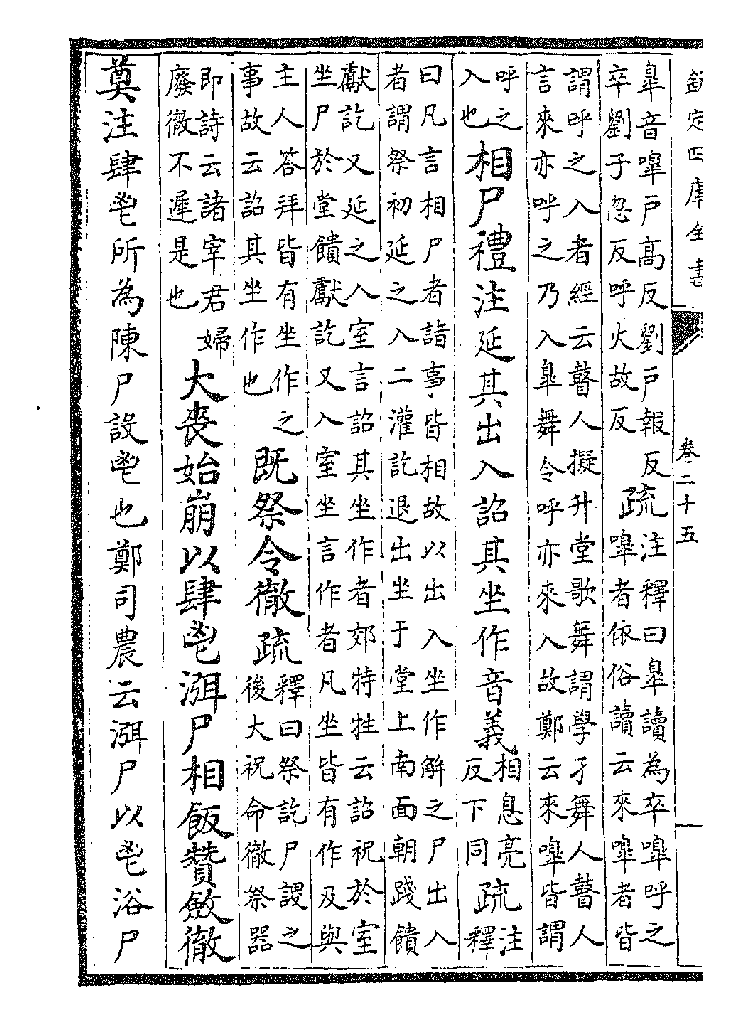 欽定四庫全書
卷二十五
臯音嘷戸高反劉戸報反
卒劉子忽反呼火故反
疏
注釋曰臯讀為卒嘷呼之
嘷者依俗讀云來嘷者皆
謂呼之入者經云瞽人擬升堂歌舞謂學子舞人瞽人
言來亦呼之乃入臯舞令呼亦來入故鄭云來嘷皆謂
呼之
入也
相尸禮注延其出入詔其坐作音義
相息亮
反下同
疏
注
釋
曰凡言相尸者諸事皆相故以出入坐作解之尸出入
者謂祭初延之入二灌訖退出坐于堂上南面朝踐饋
獻訖又延之入室言詔其坐作者郊特牲云詔祝於室
坐尸於堂饋獻訖又入室坐言作者凡坐皆有作及與
主人答拜皆有坐作之
事故云詔其坐作也
既祭令徹疏
釋曰祭訖尸謖之
後大祝命徹祭器
即詩云諸宰君婦
廢徹不遲是也
大喪始崩以肆鬯渳尸相飯贊斂徹
奠注肆鬯所為陳尸設鬯也鄭司農云渳尸以鬯浴尸